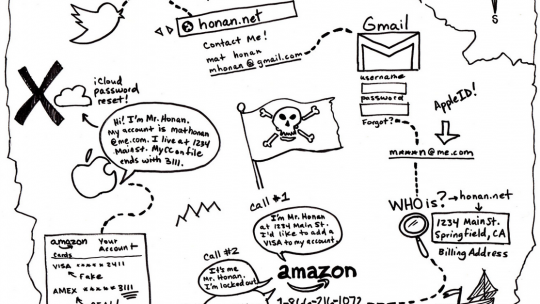 S
honan.net
Contact Me!
mat honan
mhonan@gmail.com
Gmail
username
password
Forgot?
AppleID!
m••••n@me.com
iCloud
password
reset!
Hi! I'm Mr. Honan.
My account is mathonan
@me.com. I live at 1234
Main St. My cc on file
ends with 3111.
WHO is?
honan.net
1234 Main St.
Springfield, CA
Billing Address
call #1
I'm Mr. Honan
at 1234 Main St.
I'd like to add a
VISA to my account.
call #2
It's me
Mr. Honan.
I'm locked out!
amazon
amazon
Your
Account
Cards
VISA ••••• 2411
Fake
AMEX ••••• 3111